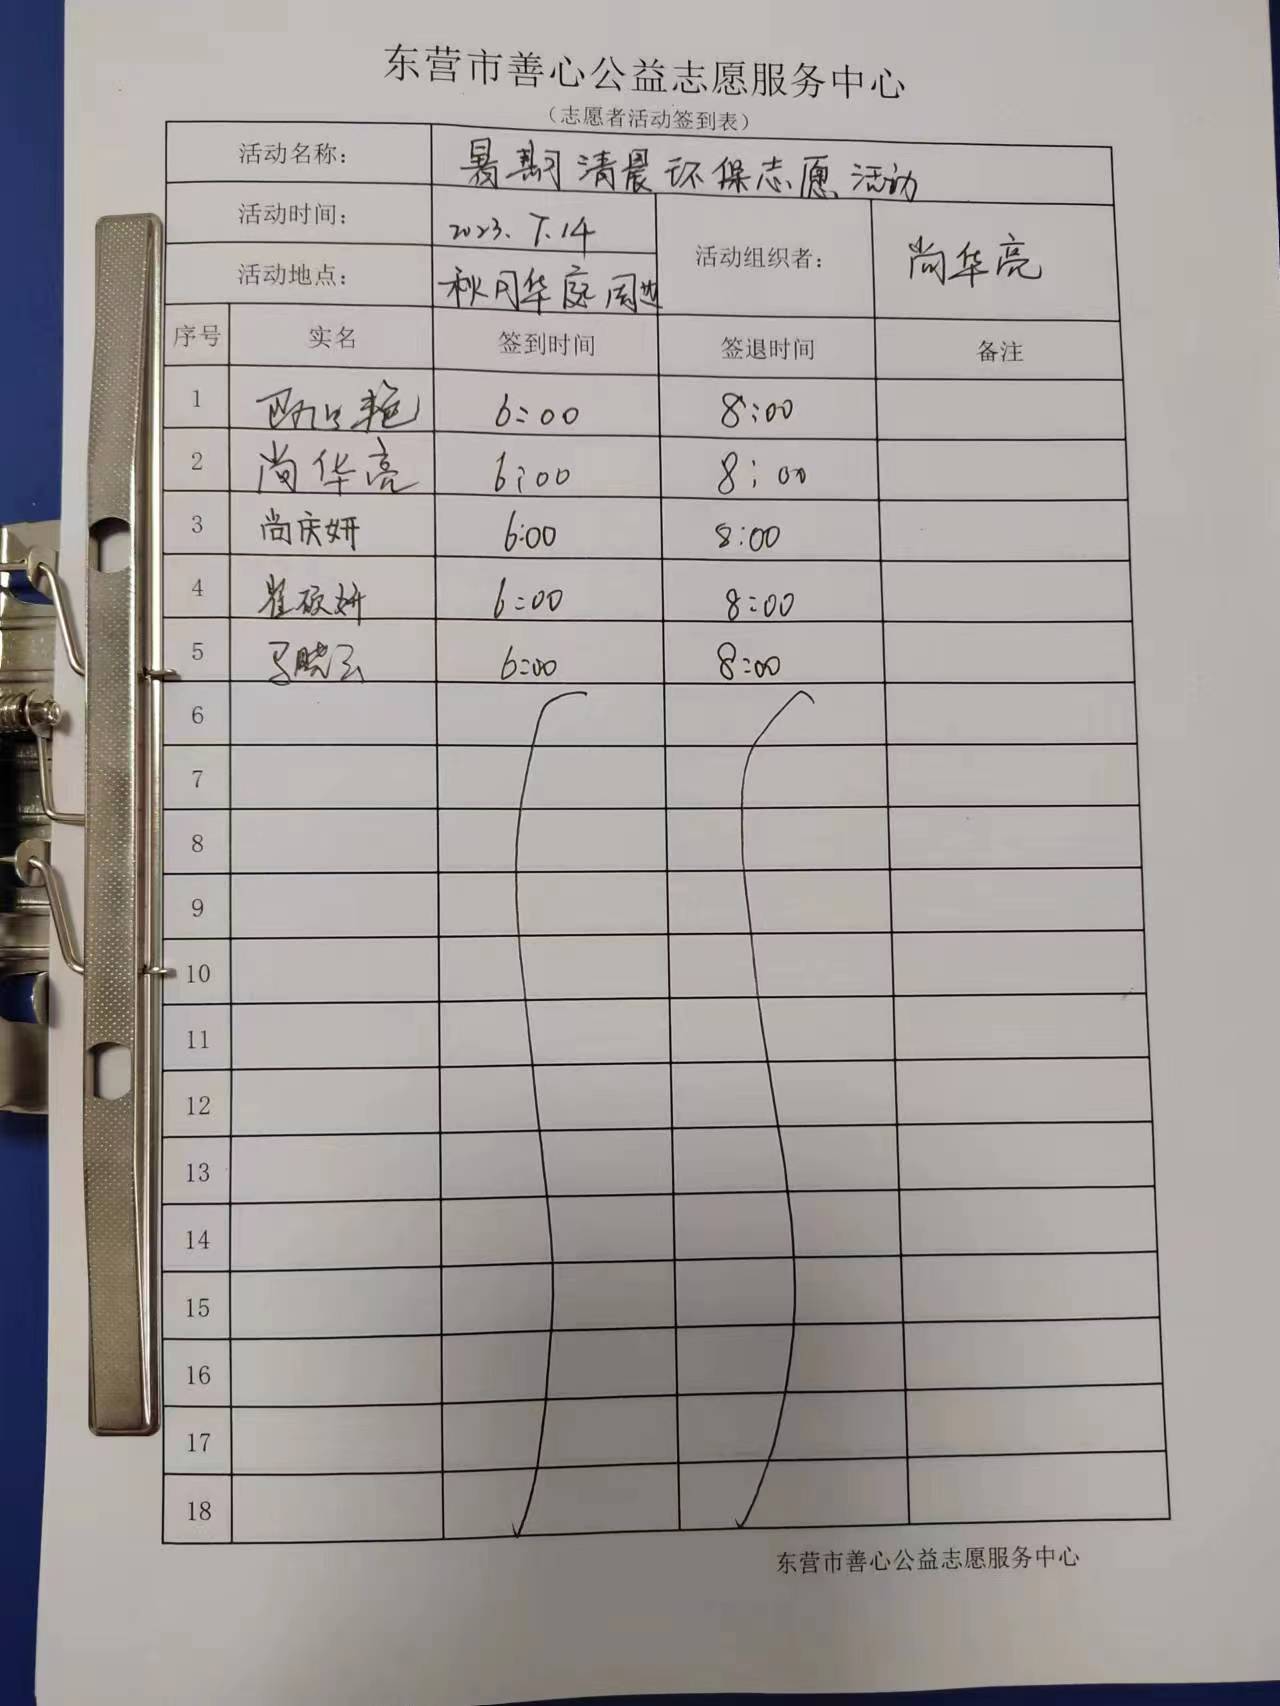 东营市善心公益志愿服务中心
（志愿者活动签到表）
活动名称： 暑期清晨环保志愿活动
活动时间： 2023.7.14 活动组织者： 尚华亮
活动地点： 秋月华庭周边
序号 实名 签到时间 签退时间 备注
1 6:00 8:00
2 尚华亮 6:00 8:00
3 尚庆妍 6:00 8:00
4 崔砚妍 6:00 8:00
5 马晓云 6:00 8:00
6
7
8
9
10
11
12
13
14
15
16
17
18
东营市善心公益志愿服务中心